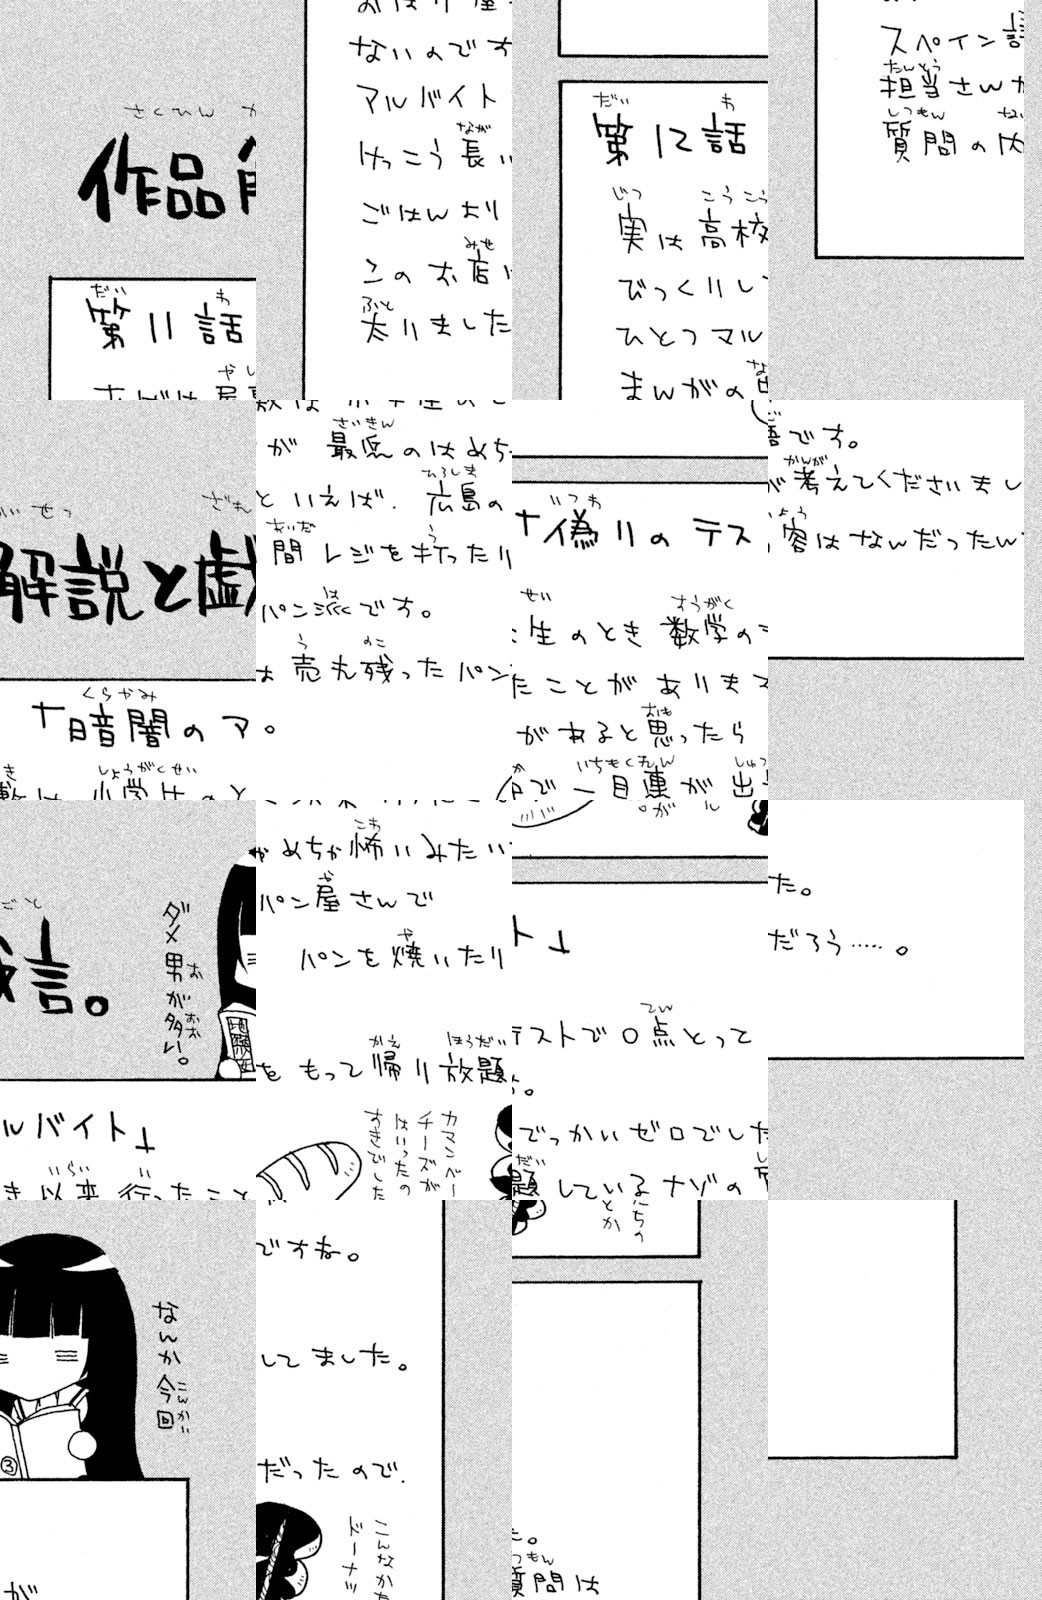 作品解説と戯言。
なんか今回
ダメ男が多い。
第11話「暗闇のアルバイト」
おばけ屋敷は小学生のとき以来行ったことが
ないのですが最近のはめちゃめちゃ怖いみたいですね。
アルバイトといえば、広島のパン屋さんで
けっこう長い間レジを打ったりパンを焼いたりしてました。
ごはんよりパン派です。
このお店は売れ残ったパンをもって帰り放題だったので、
太りました。
カマンベールチーズがはいったのすきでした
こんなかたちのドーナツとか
第12話「偽りのテスト」
実は高校生のとき数学のテストで0点とって
びっくりしたことがあります。
ひとつマルがあると思ったらでっかいゼロでした。
まんがの中で一目連が出題しているナゾの質問は
スペイン語です。
担当さんが考えてくださいました。
質問の内容はなんだったんだろう……。